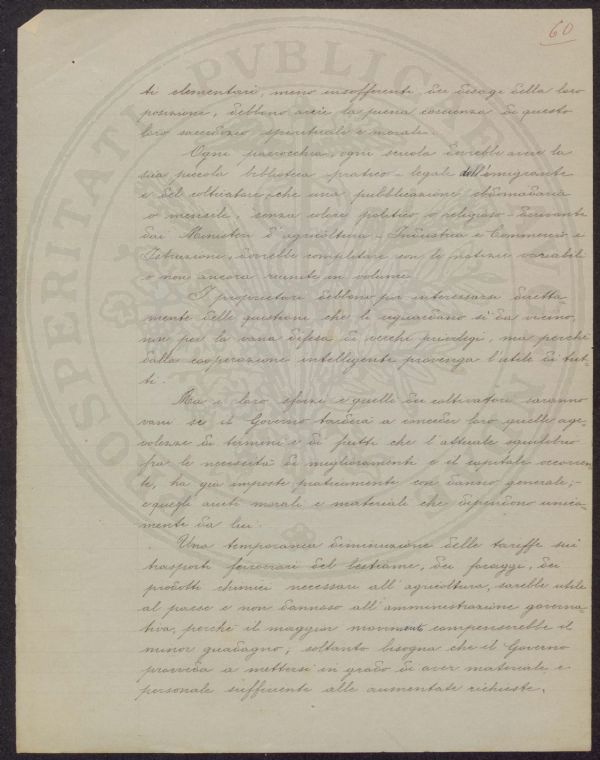 60
ti elementari, meno insofferenti, dei disagi della loro
posizione, debbono avere la piena coscienza di questo
loro sacerdozio spirituale e morale.
Ogni parrocchia, ogni scuola dovrebbe avere la
sua piccola biblioteca pratico-legale dell'emigrante
e del coltivatore, che una pubblicazione ebdomadaria
o mensile, senza colore politico o religioso - derivante
dai Ministeri d'agricoltura - Industria e Commercio e
Istruzione, dovrebbe completare con le notizie variabili
o non ancora riunite in volume.
I proprietari debbono poi interessarsi diretta-
mente delle questioni che li riguardano sì da vicino,
non per la vana difesa di vecchi privilegi, ma perchè
dalla cooperazione intelligente provenga l'utile di tut-
ti.
Ma i loro sforzi e quelli dei coltivatori saranno
vani se il Governo tarderà a conceder loro quelle age-
volezze di termini e di fitti che l'attuale squilibrio
fra le necessità di miglioramenti e il capitale occorren-
te, ha già imposte praticamente con danno generale; -
e quegli aiuti morali e materiali che dipendono unica-
mente da lui.
Una temporanea diminuzione delle tariffe sui
trasporti ferroviari del bestiame, dei foraggi, dei
prodotti chimici necessari all'agricoltura, sarebbe utile
al paese e non dannoso all'amministrazione governa-
tiva, perchè il maggior movimento compenserebbe il
minor guadagno; soltanto bisogna che il Governo
provveda a mettersi in grado di aver materiale e
personale sufficiente alle aumentate richieste.
PROSPERITATI PVBLICAE